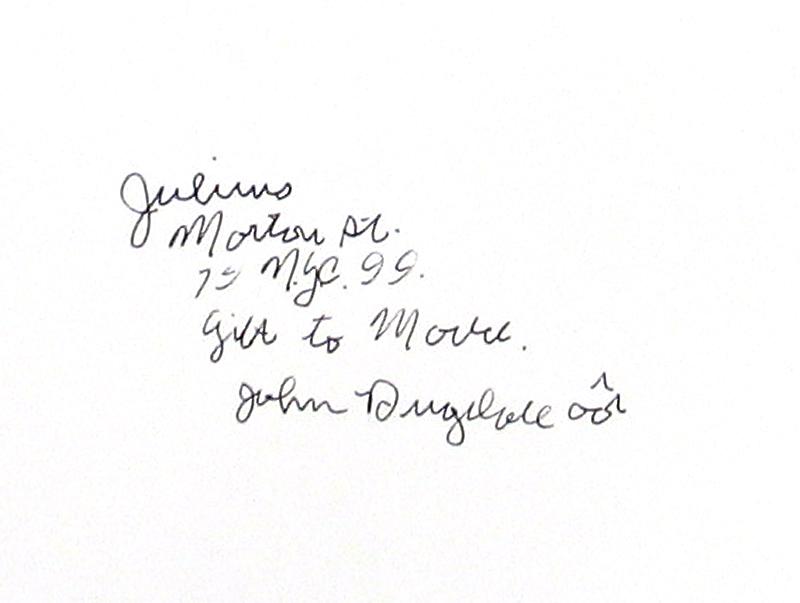 Julius
Morton St.
75 N.Y.C. 99.
Gift to
John Dugdale